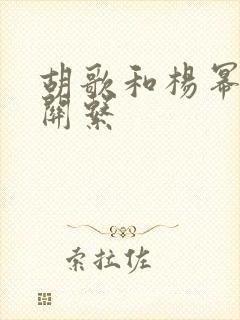 胡歌和杨幂
关系
索拉佐